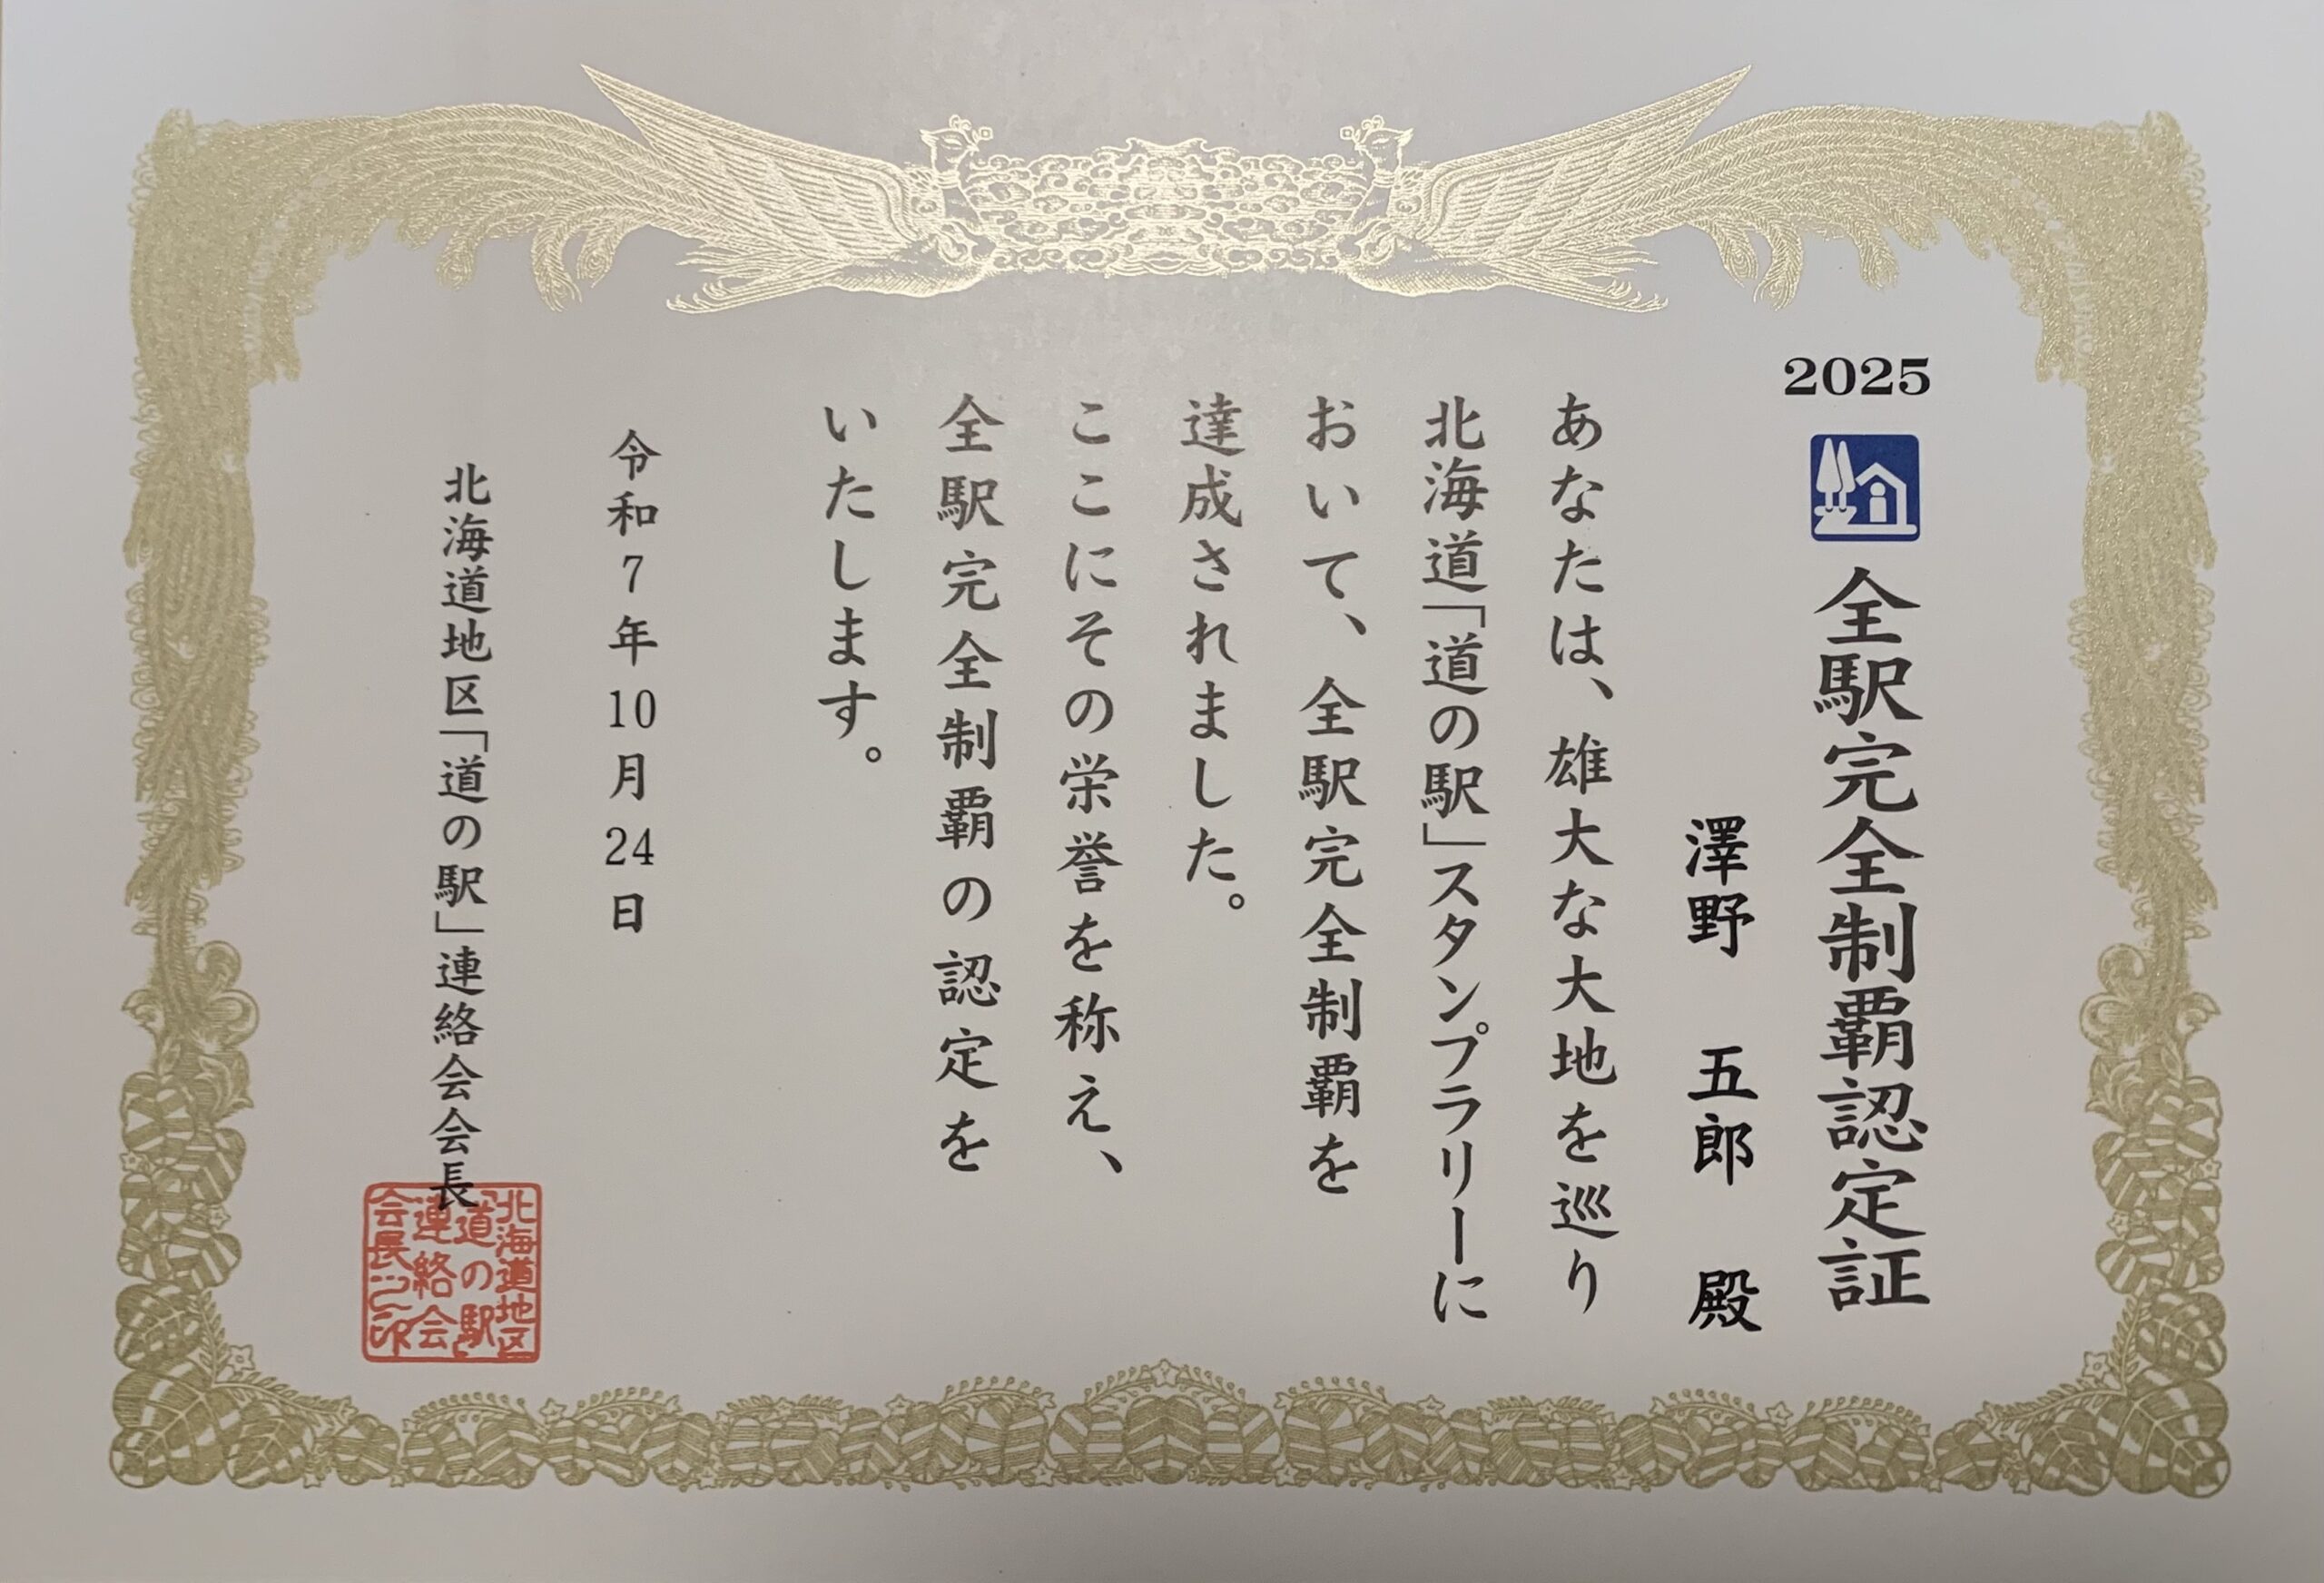 2025
全駅完全制覇認定証
澤野 五郎 殿
あなたは、雄大な大地を巡り
北海道「道の駅」スタンプラリーに
おいて、全駅完全制覇を
達成されました。
ここにその栄誉を称え、
全駅完全制覇の認定を
いたします。
令和7年10月24日
北海道地区「道の駅」連絡会会長
北海道地区
「道の駅」
連絡会
会長之印